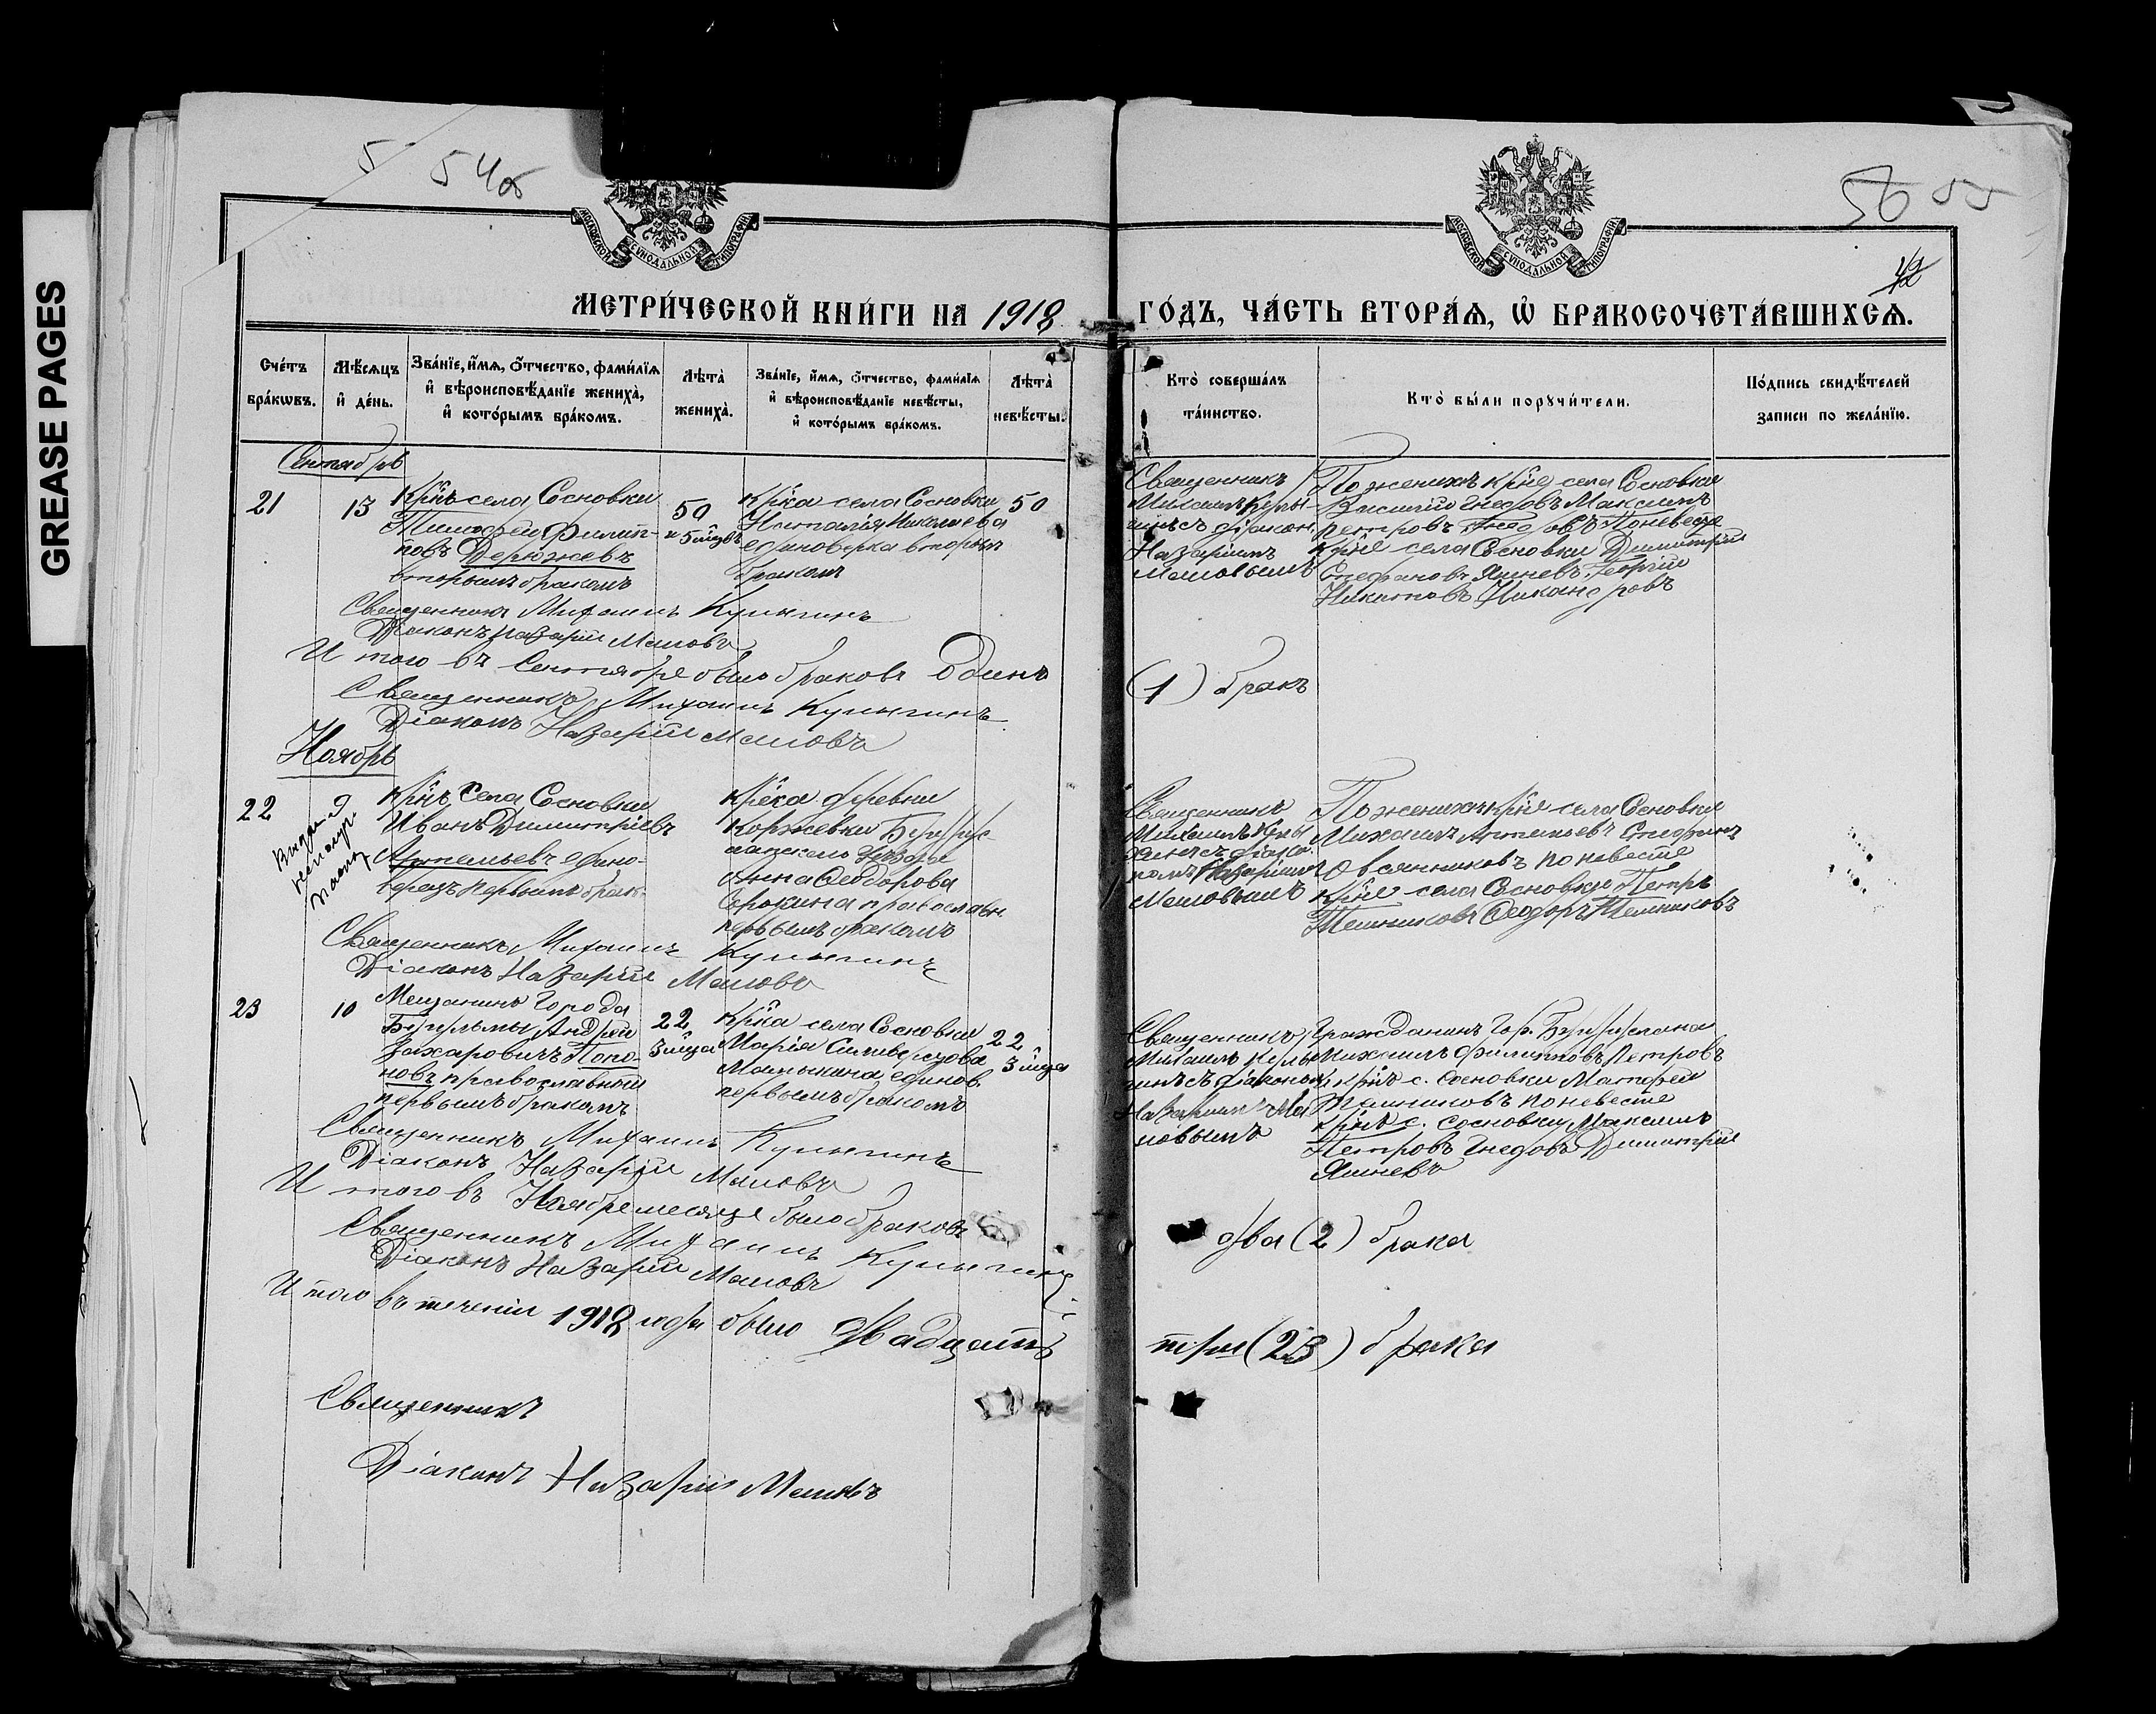 GREASE PAGES
5 54б
56 55
42
МОСКОВСКОЙ СУНОДАЛЬНОЙ ТИПОГРАФІИ
МОСКОВСКОЙ СУНОДАЛЬНОЙ ТИПОГРАФІИ
МЕТРИ́ЧЕСКОЙ КНИ́ГИ НА 1918 ГО́ДЪ, ЧА́СТЬ ВТОРА́Ѧ, Ѽ БРАКОСОЧЕТА́ВШИХСѦ.
Сче́тъ бра́кѡвъ.
Мѣ́сѧцъ и҆ де́нь.
Зва́нїе, и҆́мѧ, ѻ҆́тчество, фами́лїѧ
и҆ вѣроисповѣ́данїе жениха̀,
и҆ кото́рымъ бра́комъ.
Лѣта̀ жениха̀.
Зва́нїе, и҆́мѧ, ѻ҆́тчество, фами́лїѧ
и҆ вѣроисповѣ́данїе невѣ́сты,
и҆ кото́рымъ бра́комъ.
Лѣта̀ невѣ́сты.
Кто̀ соверша́лъ
та́инство.
Кто̀ бы́ли порꙋчи́тели.
По́дпись свидѣ́телей
записи по жела́нїю.
Сентябрь
21
13
Крн̃ъ села Сосновки
Тимофей Филип-
повъ Дерюжевъ
вторымъ бракомъ
50
и 5 мц̃въ
Крн̃ка села Сосновки
Наталія Николаева
единоверка вторым
браком
50
Священникъ
Михаилъ Кулы-
гинъ съ діакон.
Назаріемъ
Маловымъ
По женихѣ крн̃е села Сосновки
Василий Гнедовъ Максимъ
Петровъ Гнедовъ По невесте
крн̃е села Сосновки Димитрий
Стефановъ Яшневъ. Георгій
Никитовъ Никаноровъ
Священникъ Михаилъ Кулыгинъ
Діаконъ Назарій Маловъ
Итого въ Сентябре было браковъ Одинъ
(1) бракъ
Священникъ Михаилъ Кулыгинъ
Діаконъ Назарій Маловъ
Ноябрь
22
9
Крн̃ъ села Сосновки
Иванъ Димитріевъ
Артемьевъ едино-
верецъ первым брак.
Крн̃ка деревни
Коржевки Бугурус-
ланскаго уѣзда
Анна Феодорова
Сорокина православн
первымъ бракомъ
Священникъ
Михаилъ Кулы
гинъ съ діако
номъ Назаріемъ
Маловымъ
По женихѣ крн̃е села Сосновки
Михаилъ Артемьевъ Стефанъ
Овсянниковъ по невесте
крн̃е села Сосновки Петръ
Тешниковъ Феодоръ Тешниковъ
Священникъ Михаилъ Кулыгинъ
Діаконъ Назарій Маловъ
23
10
Мещанинъ города
Бугульмы Андрей
Захаровичъ Попо-
новъ православный
первымъ бракомъ
22
3 мц̃а
Крн̃ка села Сосновки
Марія Сильверстова
Малыкина единов.
первымъ бракомъ
22
3 мц̃а
Священникъ
Михаилъ Кулы
гинъ съ діакономъ
Назаріемъ Ма
ловымъ
Гражданинъ гор. Бугуруслана
Михаилъ Филипповъ Петровъ
крн̃ъ с. Сосновки Матфей
Тешниковъ по невесте
крн̃е с. Сосновки Максимъ
Петровъ Гнедовъ Димитрий
Яшневъ
Священникъ Михаилъ Кулыгинъ
Діаконъ Назарій Маловъ
Итого въ Ноябре месяце было браковъ
два (2) брака
Священникъ Михаилъ Кулыгинъ
Діаконъ Назарій Маловъ
Итого въ теченіи 1918 года было двадцать
три (23) брака
Священникъ
Діаконъ Назарій Маловъ